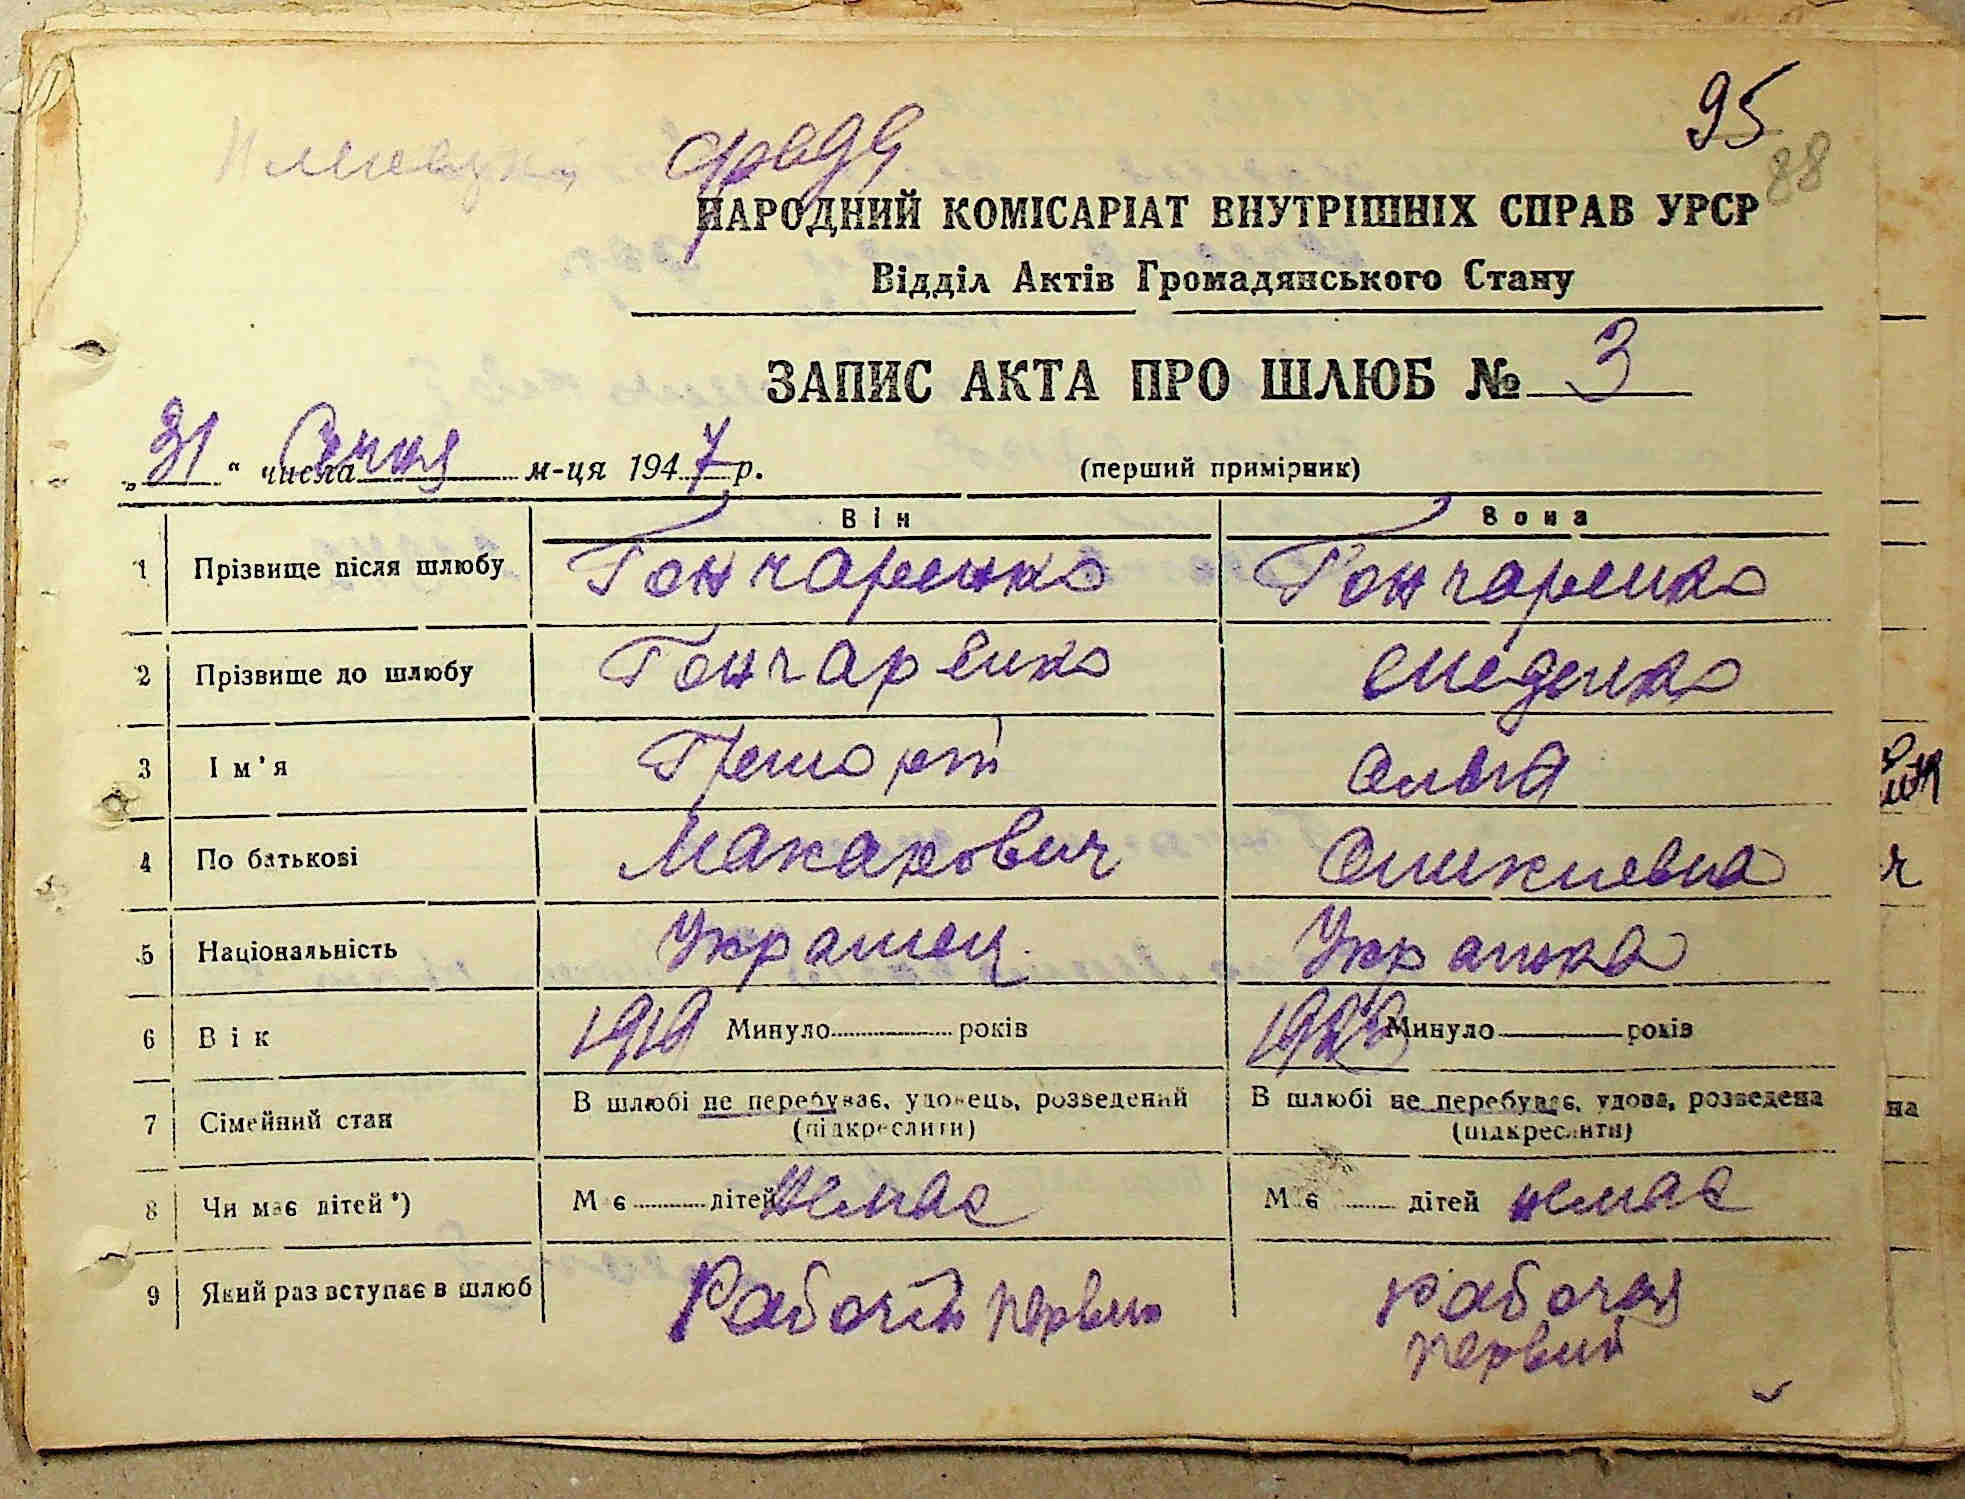 95
88
НАРОДНИЙ КОМІСАРІАТ ВНУТРІШНІХ СПРАВ УРСР
Відділ Актів Громадянського Стану
ЗАПИС АКТА ПРО ШЛЮБ № 3
„31“ числа Січня м-ця 1947 р. (перший примірник)
Він Вона
1 Прізвище після шлюбу Гончаренко Гончаренко
2 Прізвище до шлюбу Гончаренко
3 Ім'я Ольга
4 По батькові Макарович
5 Національність Украинец Украинка
6 Вік 1919 Минуло року Минуло років
7 Сімейний стан В шлюбі не перебуває, удовець, розведений В шлюбі не перебуває, удова, розведена
(підкреслити) (підкреслити)
8 Чи має дітей*) Має дітей немає Має дітей немає
9 Який раз вступає в шлюб Рабочий первый рабочая
первий